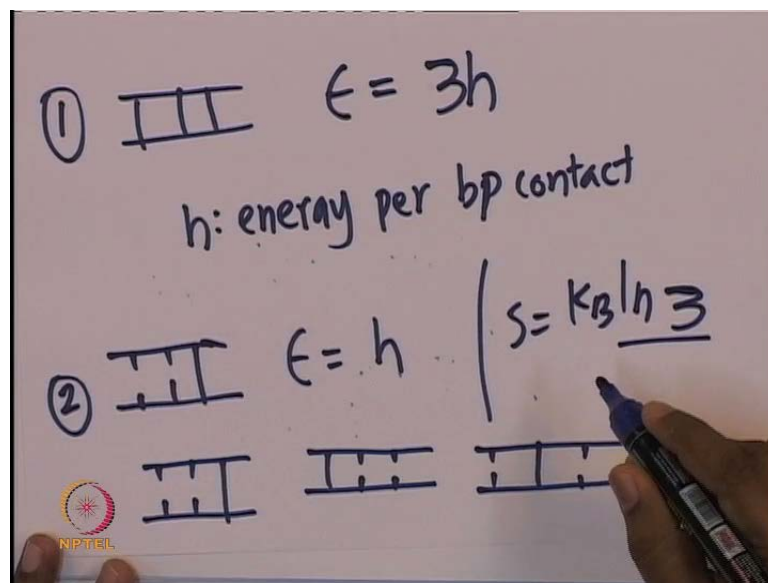 ① ϵ = 3h
h: eneray per bp contact
② ϵ = h
S = K_B ln 3
NPTEL